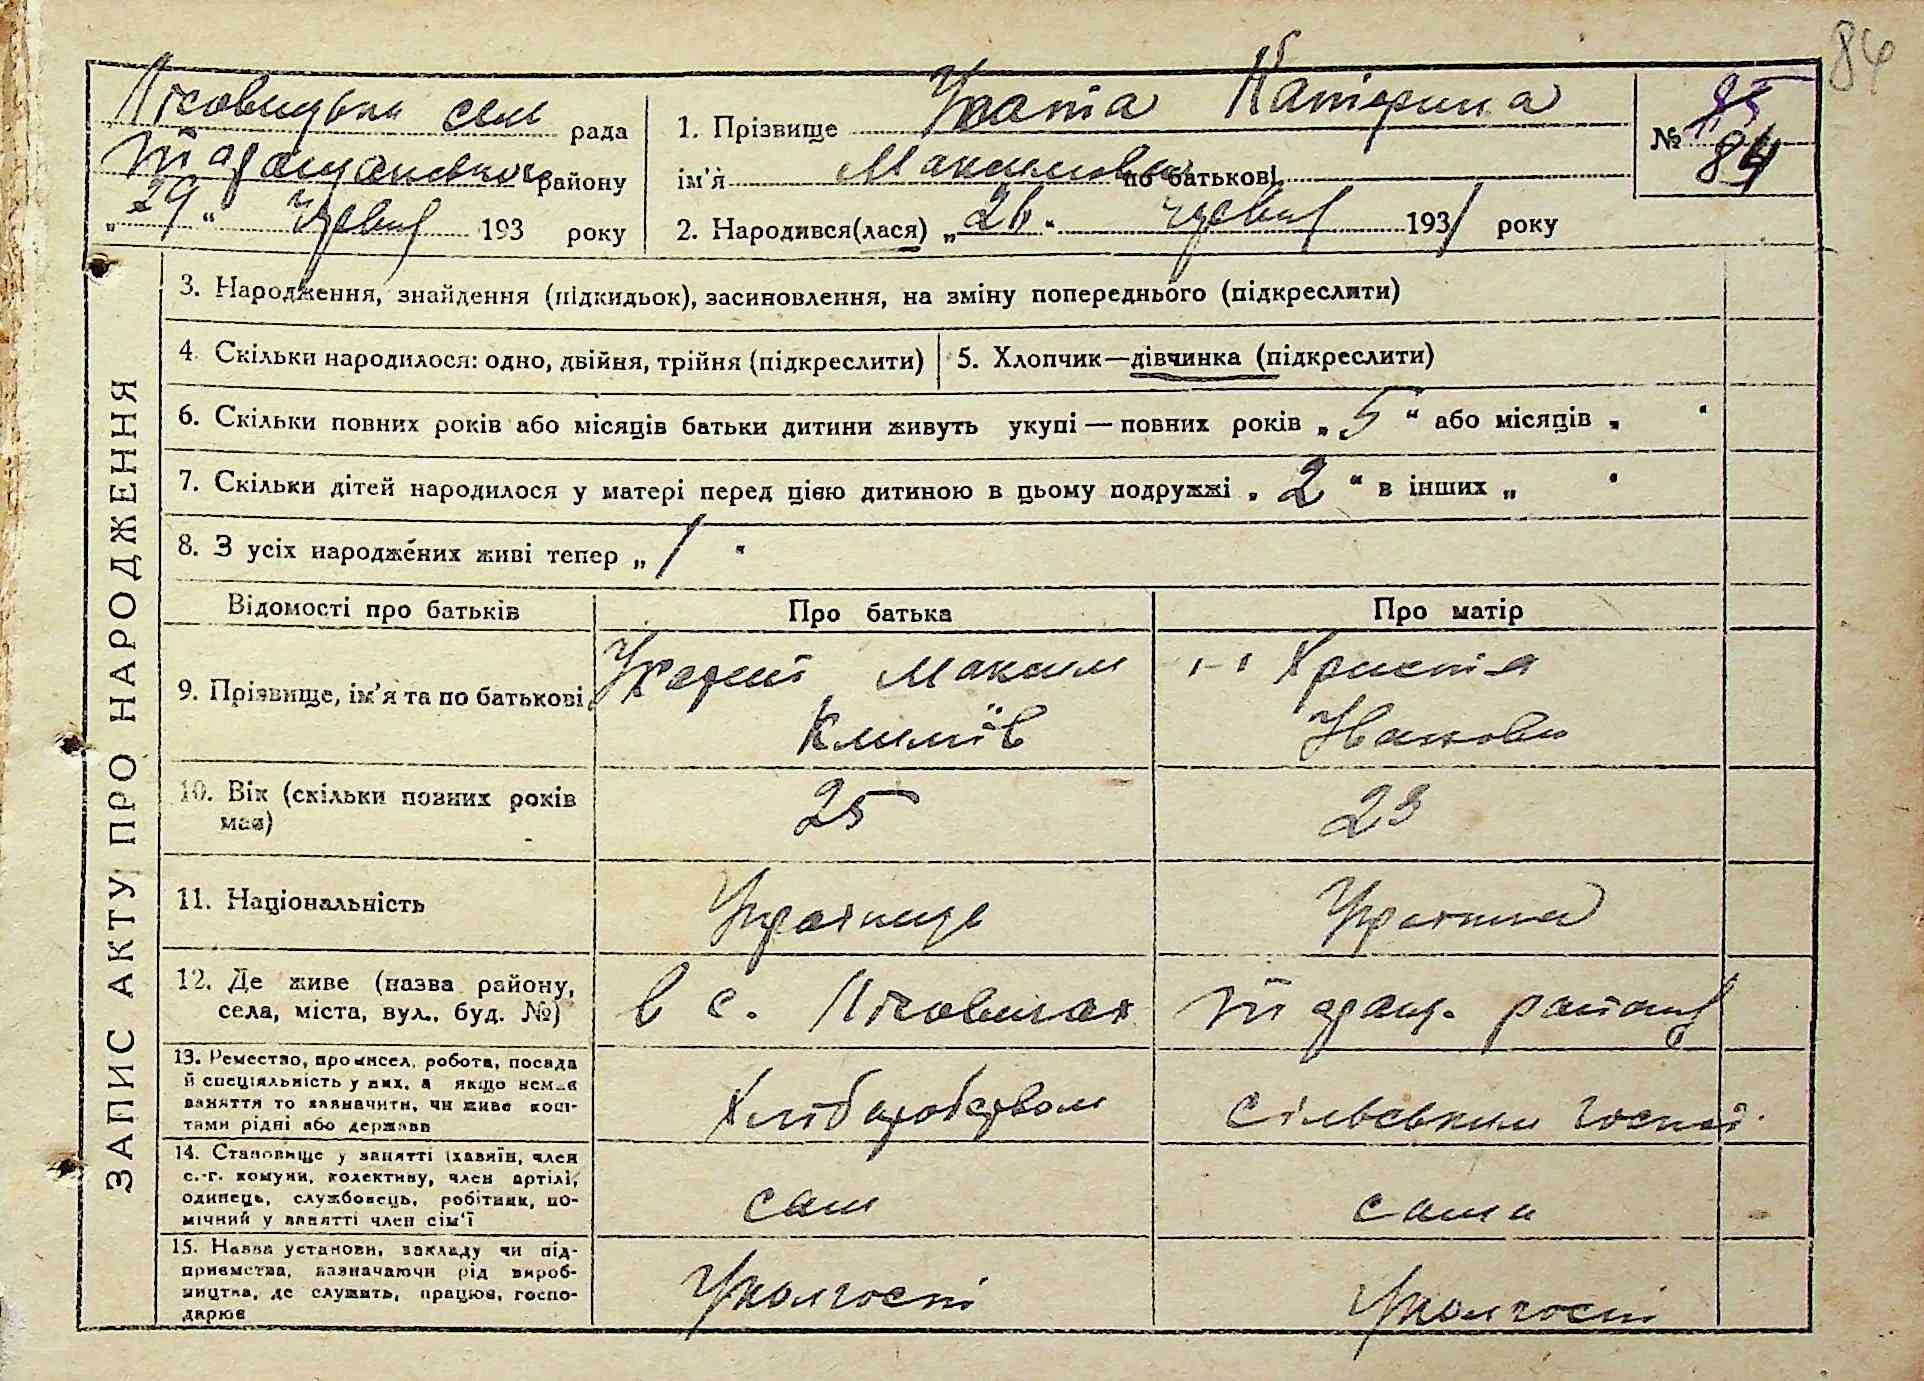 84
Лісовицька сел рада
Таращанського району
„29“ червня 193 року
1. Прізвище Катерина
ім'я Максимовна по батькові
2. Народився(лася) „26“ червня 1931 року
№ 84
ЗАПИС АКТУ ПРО НАРОДЖЕННЯ
3. Народження, знайдення (підкидьок), засиновлення, на зміну попереднього (підкреслити)
4. Скільки народилося: одно, двійня, трійня (підкреслити)
5. Хлопчик—дівчинка (підкреслити)
6. Скільки повних років або місяців батьки дитини живуть укупі — повних років „5“ або місяців „ “
7. Скільки дітей народилося у матері перед цією дитиною в цьому подружжі „2“ в інших „ “
8. З усіх народжених живі тепер „1“
Відомості про батьків Про батька Про матір
9. Прізвище, ім'я та по батькові Максим Климів -"- Христя Иванови
10. Вік (скільки повних років має) 25 23
11. Національність Украинец Украинка
12. Де живе (назва району, села, міста, вул., буд. №) в с. Лісовичах Таращ. району
13. Ремество, промисел, робота, посада й спеціяльність у них, а якщо немає заняття то зазначити, чи живе коштами рідні або держави Хліборобством Сільським господ.
14. Становище у занятті (хазяїн, член с.-г. комуни, колективу, член артілі, одинець, службовець, робітник, помічний у занятті член сім'ї сам сама
15. Назва установи, закладу чи підприємства, зазначаючи рід виробництва, де служить, працює, господарює У колгоспі У колгоспі